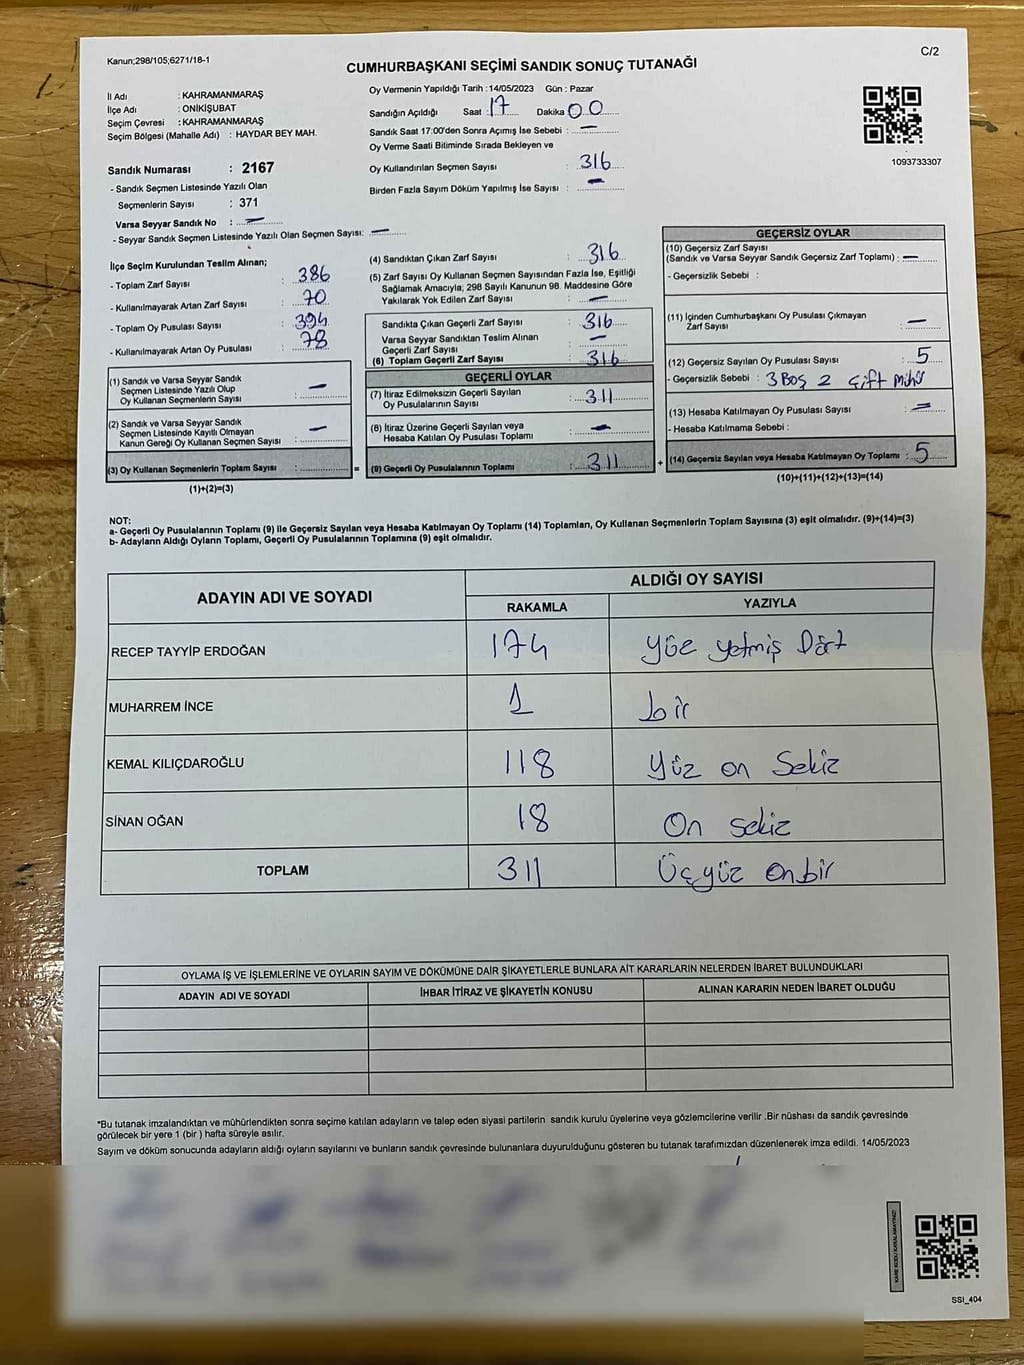 Kanun;298/105;6271/18-1
C/2
CUMHURBAŞKANI SEÇİMİ SANDIK SONUÇ TUTANAĞI
İl Adı : KAHRAMANMARAŞ
İlçe Adı : ONİKİŞUBAT
Seçim Çevresi : KAHRAMANMARAŞ
Seçim Bölgesi (Mahalle Adı) : HAYDAR BEY MAH.
Sandık Numarası : 2167
- Sandık Seçmen Listesinde Yazılı Olan
Seçmenlerin Sayısı : 371
Varsa Seyyar Sandık No : -
- Seyyar Sandık Seçmen Listesinde Yazılı Olan Seçmen Sayısı: -
Oy Vermenin Yapıldığı Tarih : 14/05/2023 Gün : Pazar
Sandığın Açıldığı Saat : 17 Dakika 00
Sandık Saat 17:00'den Sonra Açımış İse Sebebi : -
Oy Verme Saati Bitiminde Sırada Bekleyen ve
Oy Kullandırılan Seçmen Sayısı : 316
Birden Fazla Sayım Döküm Yapılmış İse Sayısı : -
1093733307
İlçe Seçim Kurulundan Teslim Alınan;
- Toplam Zarf Sayısı : 386
- Kullanılmayarak Artan Zarf Sayısı : 70
- Toplam Oy Pusulası Sayısı : 394
- Kullanılmayarak Artan Oy Pusulası : 78
(1) Sandık ve Varsa Seyyar Sandık
Seçmen Listesinde Yazılı Olup
Oy Kullanan Seçmenlerin Sayısı : -
(2) Sandık ve Varsa Seyyar Sandık
Seçmen Listesinde Kayıtlı Olmayan
Kanun Gereği Oy Kullanan Seçmen Sayısı : -
(3) Oy Kullanan Seçmenlerin Toplam Sayısı : =
(1)+(2)=(3)
(4) Sandıktan Çıkan Zarf Sayısı : 316
(5) Zarf Sayısı Oy Kullanan Seçmen Sayısından Fazla İse, Eşitliği
Sağlamak Amacıyla; 298 Sayılı Kanunun 98. Maddesine Göre
Yakılarak Yok Edilen Zarf Sayısı : -
Sandıkta Çıkan Geçerli Zarf Sayısı : 316
Varsa Seyyar Sandıktan Teslim Alınan
Geçerli Zarf Sayısı : -
(6) Toplam Geçerli Zarf Sayısı : 316
GEÇERLİ OYLAR
(7) İtiraz Edilmeksizin Geçerli Sayılan
Oy Pusulalarının Sayısı : 311
(8) İtiraz Üzerine Geçerli Sayılan veya
Hesaba Katılan Oy Pusulası Toplamı : -
(9) Geçerli Oy Pusulalarının Toplamı : 311 +
GEÇERSİZ OYLAR
(10) Geçersiz Zarf Sayısı
(Sandık ve Varsa Seyyar Sandık Geçersiz Zarf Toplamı) : -
- Geçersizlik Sebebi :
(11) İçinden Cumhurbaşkanı Oy Pusulası Çıkmayan
Zarf Sayısı : -
(12) Geçersiz Sayılan Oy Pusulası Sayısı : 5
- Geçersizlik Sebebi : 3 Boş 2 Çift Mühür
(13) Hesaba Katılmayan Oy Pusulası Sayısı : -
- Hesaba Katılmama Sebebi :
(14) Geçersiz Sayılan veya Hesaba Katılmayan Oy Toplamı : 5
(10)+(11)+(12)+(13)=(14)
NOT:
a- Geçerli Oy Pusulalarının Toplamı (9) ile Geçersiz Sayılan veya Hesaba Katılmayan Oy Toplamı (14) Toplamları, Oy Kullanan Seçmenlerin Toplam Sayısına (3) eşit olmalıdır. (9)+(14)=(3)
b- Adayların Aldığı Oyların Toplamı, Geçerli Oy Pusulalarının Toplamına (9) eşit olmalıdır.
ADAYIN ADI VE SOYADI
ALDIĞI OY SAYISI
RAKAMLA YAZIYLA
RECEP TAYYİP ERDOĞAN 174 Yüz yetmiş Dört
MUHARREM İNCE 1 bir
KEMAL KILIÇDAROĞLU 118 Yüz on Sekiz
SİNAN OĞAN 18 On sekiz
TOPLAM 311 Üçyüz onbir
OYLAMA İŞ VE İŞLEMLERİNE VE OYLARIN SAYIM VE DÖKÜMÜNE DAİR ŞİKAYETLERLE BUNLARA AİT KARARLARIN NELERDEN İBARET BULUNDUKLARI
ADAYIN ADI VE SOYADI İHBAR İTİRAZ VE ŞİKAYETİN KONUSU ALINAN KARARIN NEDEN İBARET OLDUĞU
*Bu tutanak imzalandıktan ve mühürlendikten sonra seçime katılan adayların ve talep eden siyasi partilerin sandık kurulu üyelerine veya gözlemcilerine verilir .Bir nüshası da sandık çevresinde
görülecek bir yere 1 (bir ) hafta süreyle asılır.
Sayım ve döküm sonucunda adayların aldığı oyların sayılarını ve bunların sandık çevresinde bulunanlara duyurulduğunu gösteren bu tutanak tarafımızdan düzenlenerek imza edildi. 14/05/2023
KARE KODU KARALAMAYINIZ!
SSI_404